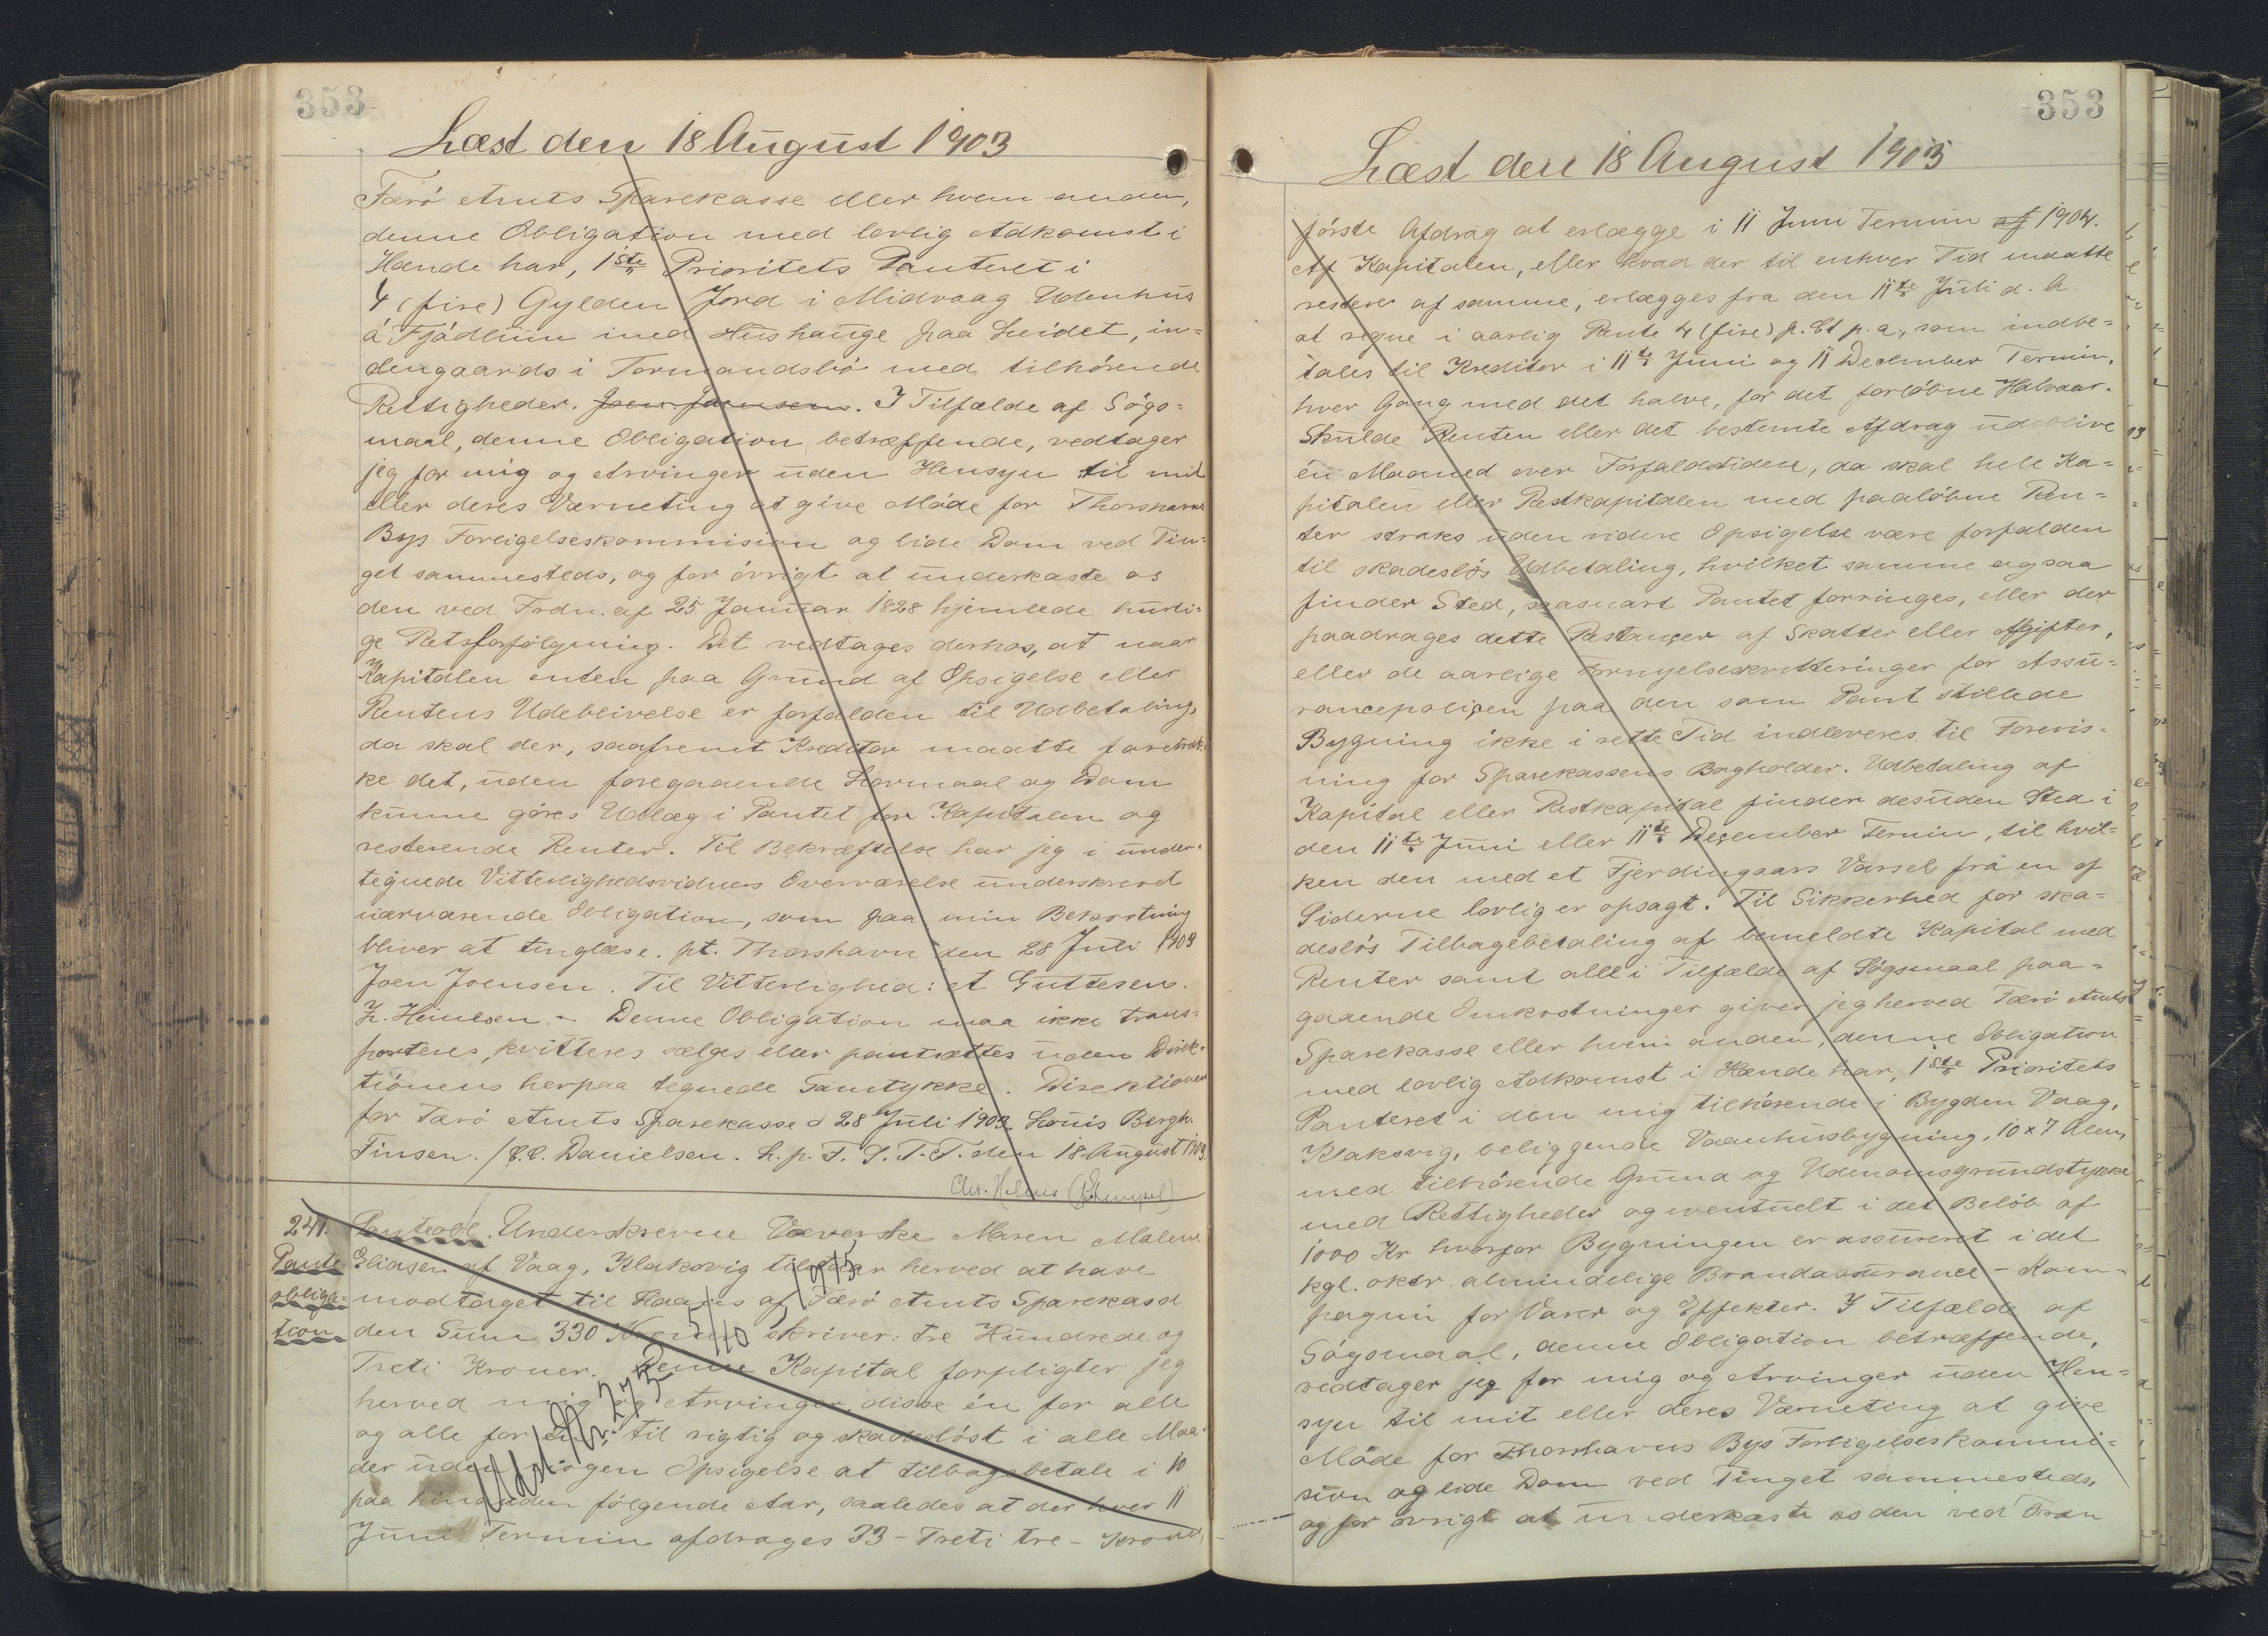 353
Læst den 18 August 1903
Færö Amts Sparekasse eller hvem anden,
denne Obligation med lovlig Adkomst i
Hænde har, 1ste Prioritets Panteret i
4 (fire) Gylden Jord i Midvaag Udenhus
á Fjødlum med Hushauge paa Leidet, in=
dengaards i Tormandsbö med tilhörende
Rettigheder. Joen Joensen. I Tilfælde af Sögs=
maal, denne Obligation betræffende, vedtager
jeg for mig og Arvinger uden Hensyn til mit
eller deres Værneting at give Möde for Thorshavns
Bys Forligelseskommision og lide Dom ved Tin=
get sammesteds, og for övrigt at underkaste os
den ved Frdn. af 25 Januar 1828 hjemlede hurti=
ge Retsforfölgning. Det vedtages derhos, at naar
Kapitalen enten paa Grund af Opsigelse eller
Rentens Udeblivelse er forfalden til Udbetaling,
da skal der, saafremt Kreditor maatte foretræk=
ke det, uden foregaaende Lovmaal og Dom
kunne göres Udlæg i Pantet for Kapitalen og
resterende Renter. Til Bekræftelse har jeg i under=
tegnede Vitterlighedsvidners Overværelse underskrevet
nærværende Obligation, som paa min Bekostning
bliver at tinglæse. pt. Thorshavn den 28 Juli 1903
Joen Joensen. Til Vitterlighed: A Guttesen.
Z. Heinesen. - Denne Obligation maa ikke trans=
porteres, kvitteres sælges eller pantsættes uden Direk=
tionens herpaa tegnede Samtykke. Direktionen
for Færö Amts Sparekasse d 28 Juli 1903. Louis Bergh.
Finsen. / C.C. Danielsen. L. p. F. S. T. T. den 18 August 1903.
241. Panteobl. Underskrevne Væverske Maren Malene
Pante= Eliasen af Vaag, Klaksvig tilstaar herved at have
obliga= modtaget til Laans af Færö Amts Sparekasse
tion den Sum 330 Kroner skriver: tre Hundrede og
Treti Kroner. Denne Kapital forpligter jeg
herved mig og Arvinger, disse én for alle
og alle for én til rigtig og skadeslöst i alle Maa=
der uden nogen Opsigelse at tilbagebetale i 10
paa hinanden fölgende Aar, saaledes at der hver 11
Juni Termin afdrages 33 - Treti tre - Kroner,
Udsl. Nr. 275 5/10 1915
353
Læst den 18 August 1903
förste Afdrag at erlægge i 11 Juni Termin af 1904.
Af Kapitalen, eller hvad der til enhver Tid maatte
restere af samme, erlægges fra den 11te Juli d. A.
at regne i aarlig Rente 4 (fire) p. Ct p. a., som indbe=
tales til Kreditor i 11te Juni og 11 December Termin,
hver Gang med det halve, for det forlöbne Halvaar.
Skulde Renten eller det bestemte Afdrag udeblive
én Maaned over Forfaldstiden, da skal hele Ka=
pitalen eller Restkapitalen med paalöbne Ren=
ter straks uden videre Opsigelse være forfalden
til skadeslös Udbetaling, hvilket samme ogsaa
finder Sted, saasnart Pantet forringes, eller der
paadrages dette Restancer af Skatter eller Afgifter,
eller de aarlige Fornyelseskvitteringer for Assu=
rancepolicen paa den som Pant stillede
Bygning ikke i rette Tid indleveres til Forevis=
ning for Sparekassens Bogholder. Udbetaling af
Kapital eller Restkapital finder desuden Sted i
den 11te Juni eller 11te December Termin, til hvil=
ken den med et Fjerdingaars Varsel fra en af
Siderne lovlig er opsagt. Til Sikkerhed for ska=
deslös Tilbagebetaling af bemeldte Kapital med
Renter samt alle i Tilfælde af Sögsmaal paa=
gaaende Omkostninger giver jeg herved Færö Amts
Sparekasse eller hvem anden, denne Obligation
med lovlig Adkomst i Hænde har, 1ste Prioritets
Panteret i den mig tilhörende i Bygden Vaag,
Klaksvig, beliggende Vaanhusbygning, 10 x 7 Alen,
med tilhörende Grund og Udenomsgrundstykke
med Rettigheder og eventuelt i det Belöb af
1000 Kr hvorfor Bygningen er assureret i det
kgl. oktr. almindelige Brandassurance-Kom=
pagni for Varer og Effekter. I Tilfælde af
Sögsmaal, denne Obligation betræffende,
vedtager jeg for mig og Arvinger uden Hen=
syn til mit eller deres Værneting at give
Möde for Thorshavns Bys Forligelseskommi=
sion og lide Dom ved Tinget sammesteds,
og for övrigt at underkaste os den ved Frdn